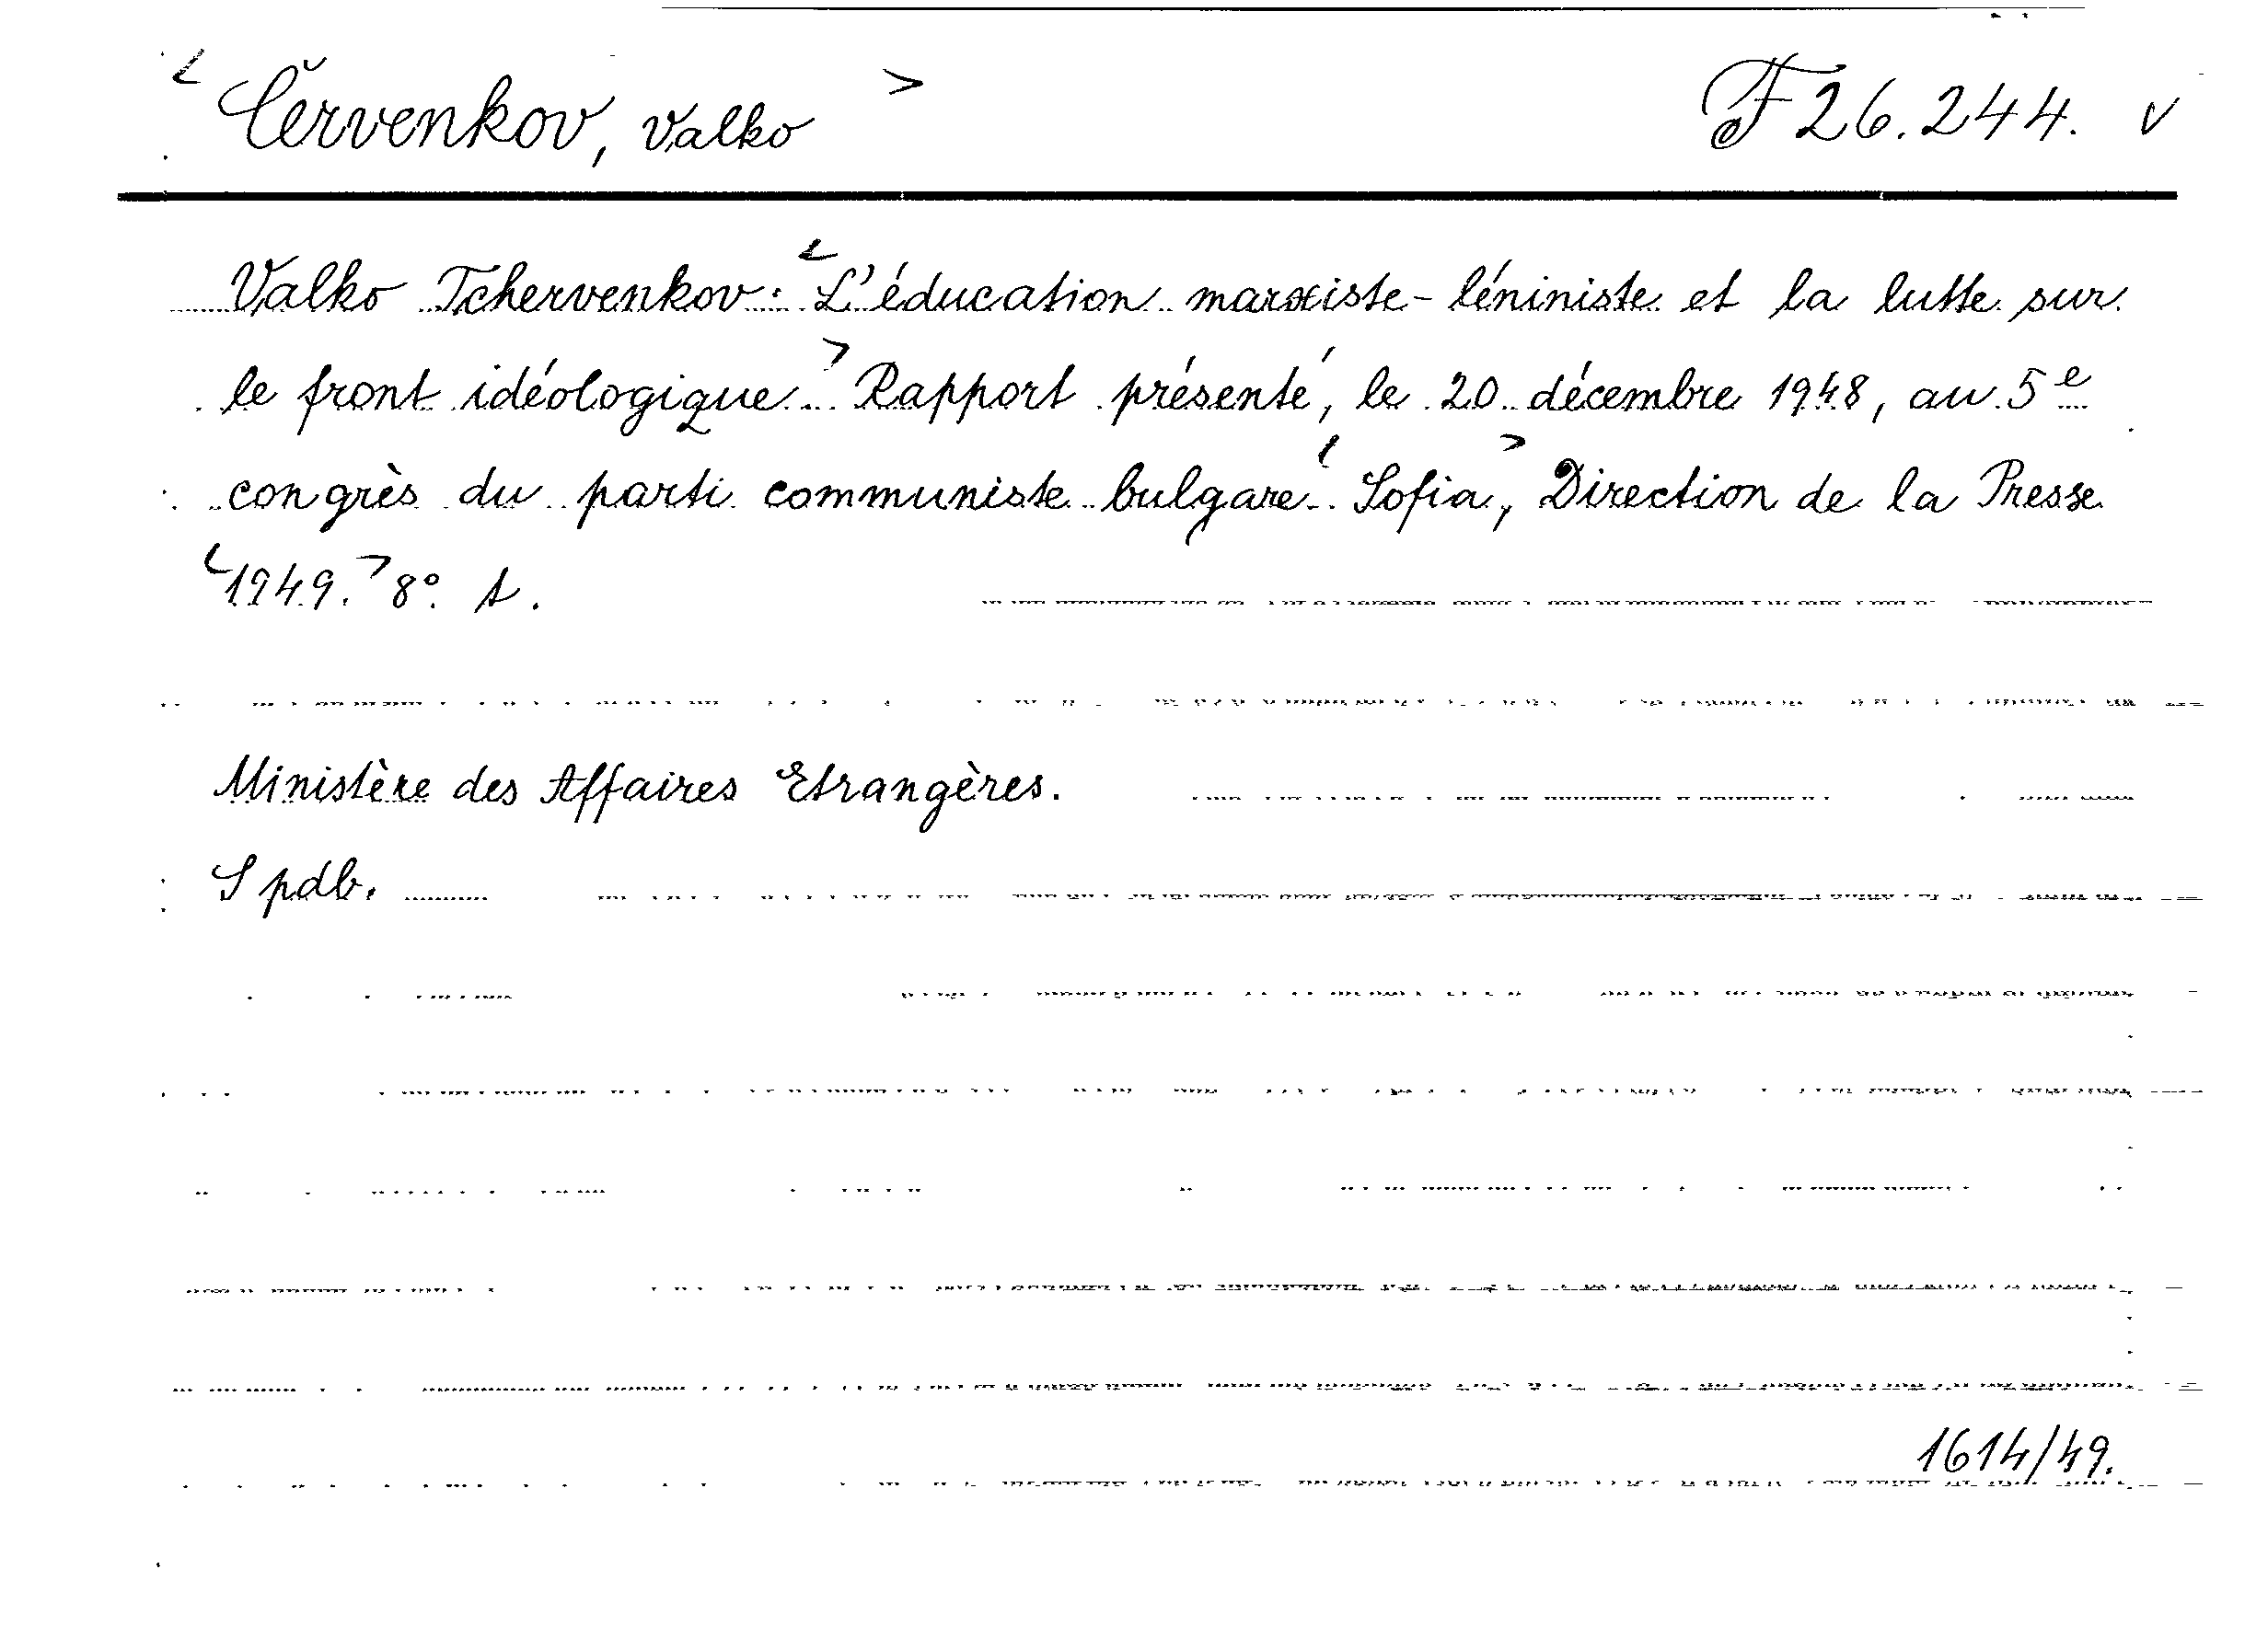 < Červenkov, Valko > F 26.244. v
Valko Tchervenkov: <L'éducation marxiste-léniniste et la lutte sur
le front idéologique.> Rapport présenté, le 20 décembre 1948, au 5e
congrès du parti communiste bulgare. <Sofia,> Direction de la Presse
<1949.> 8°. A.
Ministère des Affaires Etrangères.
S pdb.
1614/49.